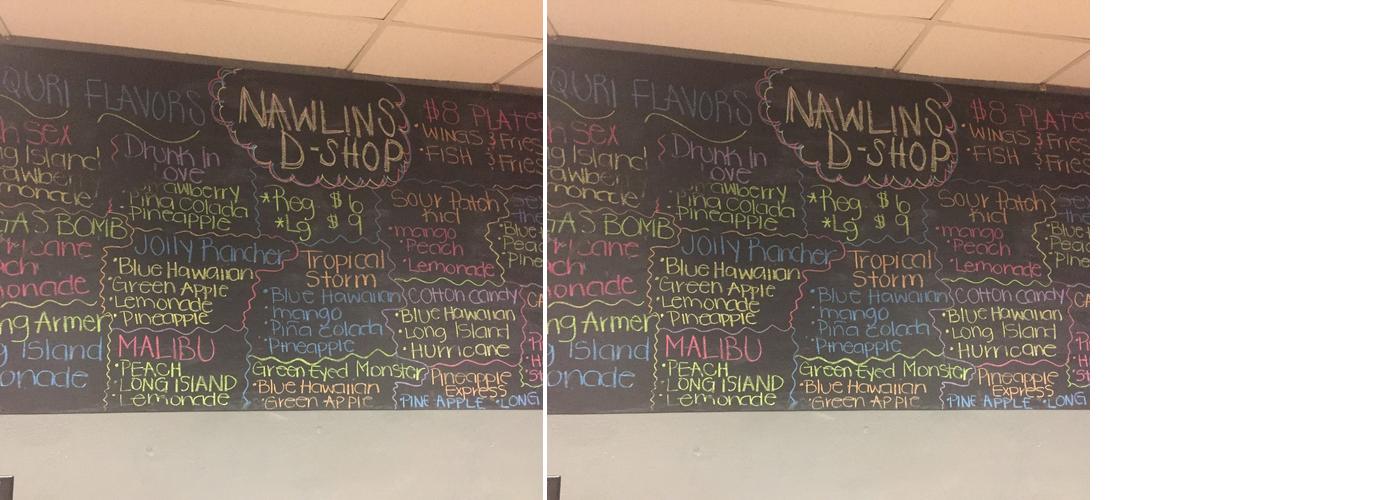 QURI FLAVORS
h Sex
g Island
monade
GAS BOMB
onade
ng Armer
g Island
onade
Drunk in
ove
Pina Colada
Pineapple
Jolly Rancher
·Blue Hawaiian
·Green Apple
·Lemonade
·Pineapple
MALIBU
·PEACH
·LONG ISLAND
·Lemonade
NAWLINS
D-SHOP
*Reg $6
*Lg $9
Tropical
Storm
·Blue Hawaiian
·mango
·Piña Colada
·Pineapple
Green Eyed Monster
·Blue Hawaiian
·Green Apple
$8 PLATES
·WINGS & Fries
·FISH & Fries
Sour Patch
Kid
·mango
·Peach
·Lemonade
Cotton Candy
·Blue Hawaiian
·Long Island
·Hurricane
Pineapple
Express
·PINE APPLE ·LONG
QURI FLAVORS
h Sex
g Island
monade
GAS BOMB
onade
ng Armer
g Island
onade
Drunk in
ove
Pina Colada
Pineapple
Jolly Rancher
·Blue Hawaiian
·Green Apple
·Lemonade
·Pineapple
MALIBU
·PEACH
·LONG ISLAND
·Lemonade
NAWLINS
D-SHOP
*Reg $6
*Lg $9
Tropical
Storm
·Blue Hawaiian
·mango
·Piña Colada
·Pineapple
Green Eyed Monster
·Blue Hawaiian
·Green Apple
$8 PLATES
·WINGS & Fries
·FISH & Fries
Sour Patch
Kid
·mango
·Peach
·Lemonade
Cotton Candy
·Blue Hawaiian
·Long Island
·Hurricane
Pineapple
Express
·PINE APPLE ·LONG